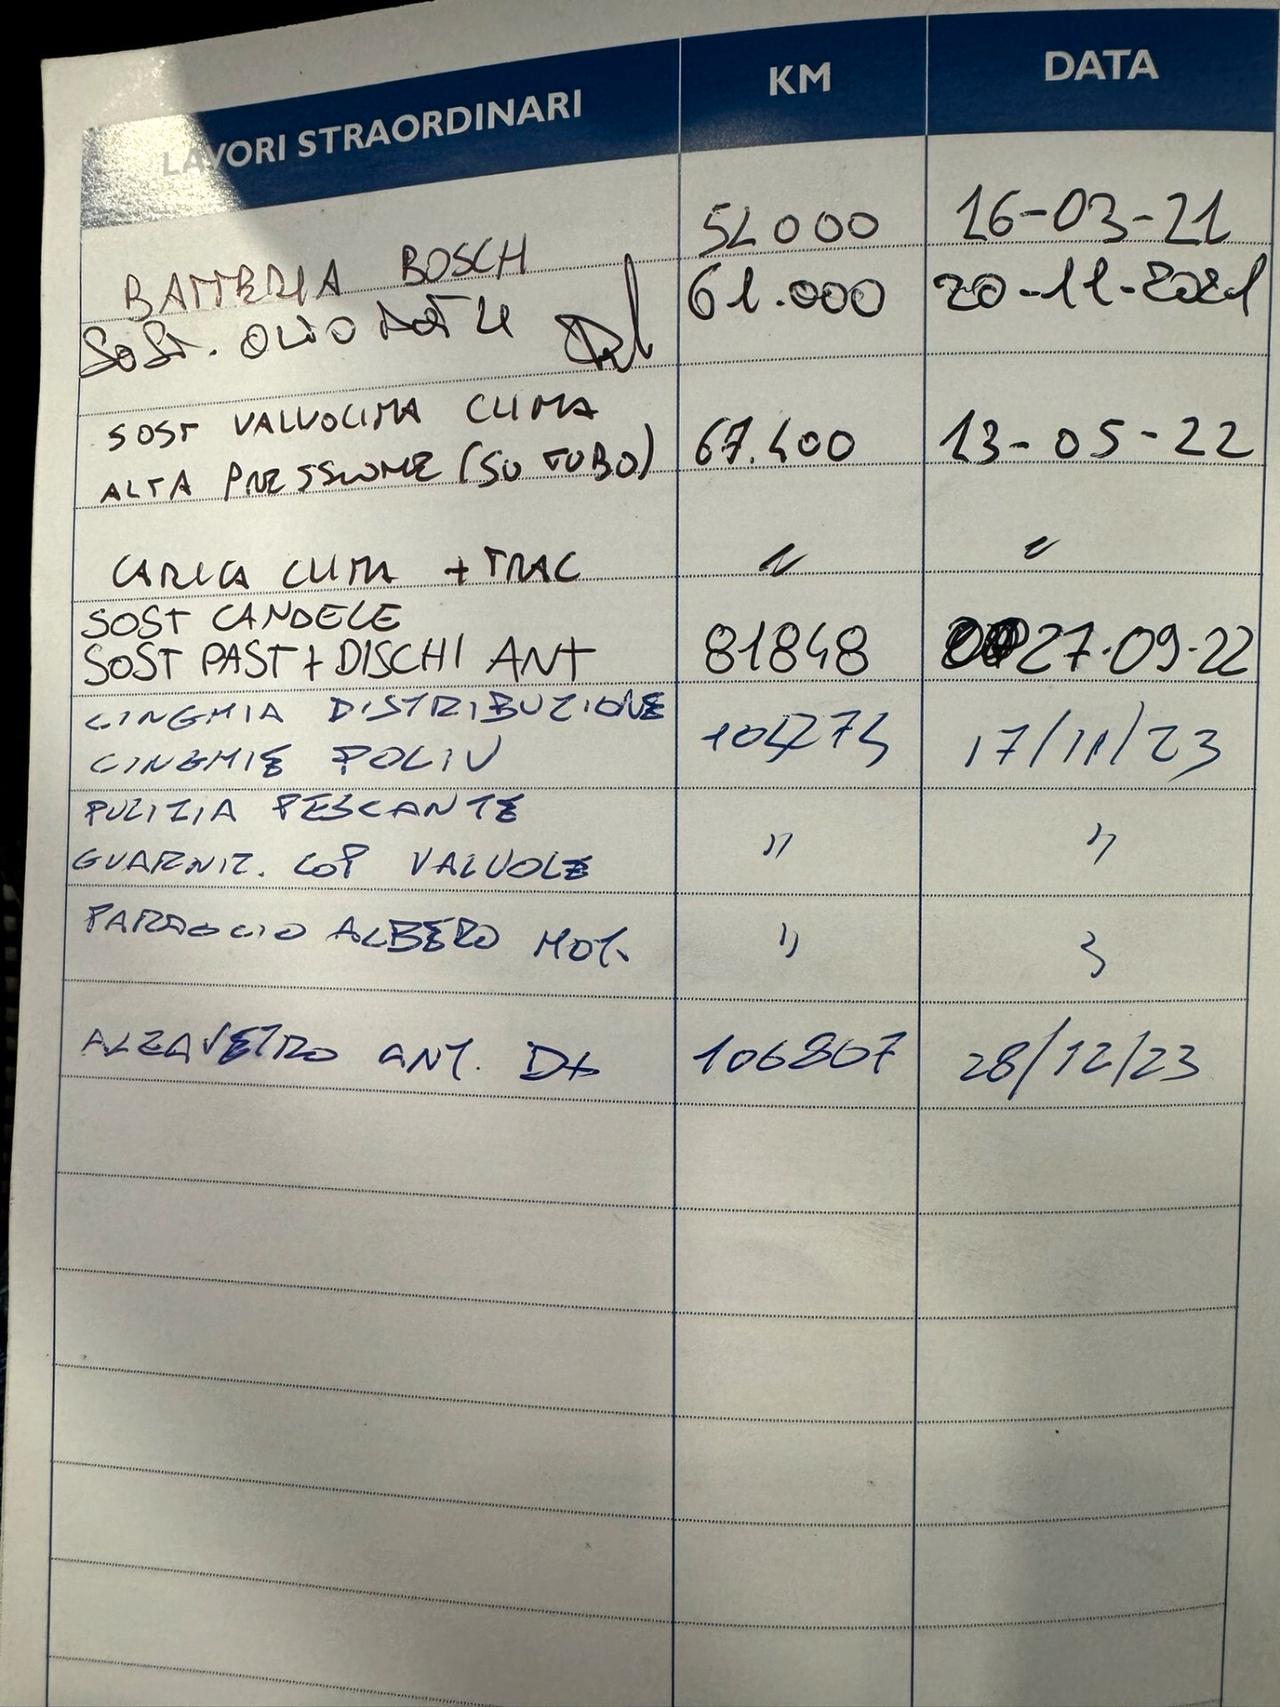 LAVORI STRAORDINARI KM DATA
BATTERIA BOSCH 52000 16-03-21
SOST. OLIO 61.000 20-11-2021
SOST VALVOLINA CLIMA
ALTA PRESSIONE (SU TUBO) 67.400 13-05-22
CARICA CLIMA + TRAC " "
SOST CANDELE
SOST PAST + DISCHI ANT 81848 27-09-22
CINGHIA DISTRIBUZIONE
CINGHIE POLIV 17/11/23
PULIZIA PESCANTE
GUARNIZ. COP VALVOLE " "
PARAOLIO ALBERO MOT. " "
ALZAVETRO ANT. DX 106807 28/12/23